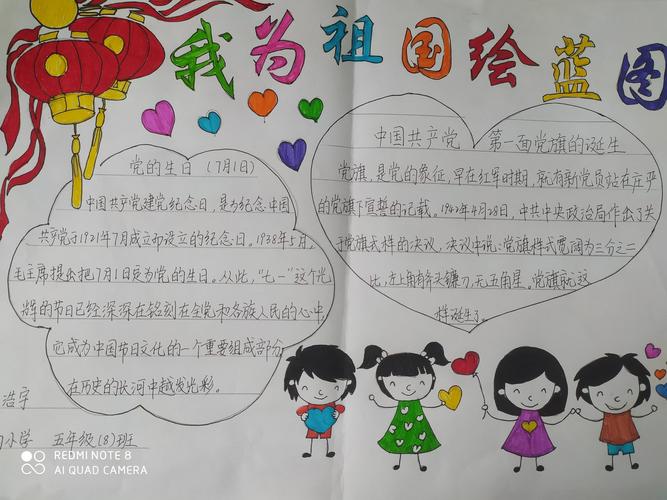 我为祖国绘蓝图
党的生日（7月1日）
中国共产党建党纪念日，是为纪念中国
共产党于1921年7月成立却设立的纪念日。1938年5月，
毛主席提出把7月1日更为党的生日。从此，“七一”这个光
辉的节日已经深深在铭刻在全党和各族人民的心中，
它成为中国节日文化的一个重要组成部分
在历史的长河中越发光彩。
中国共产党 第一面党旗的诞生
党旗，是党的象征，早在红军时期，就有新党员站在庄严
的党旗下宣誓的记载，1942年4月28日，中共中央政治局作出了关
于党旗式样的决议，决议中说：党旗样式宽阔为三分之二
比，左上角有斧头镰刀，无五角星。党旗就这
样诞生了。
浩宇
小学 五年级(8)班
REDMI NOTE 8
AI QUAD CAMERA